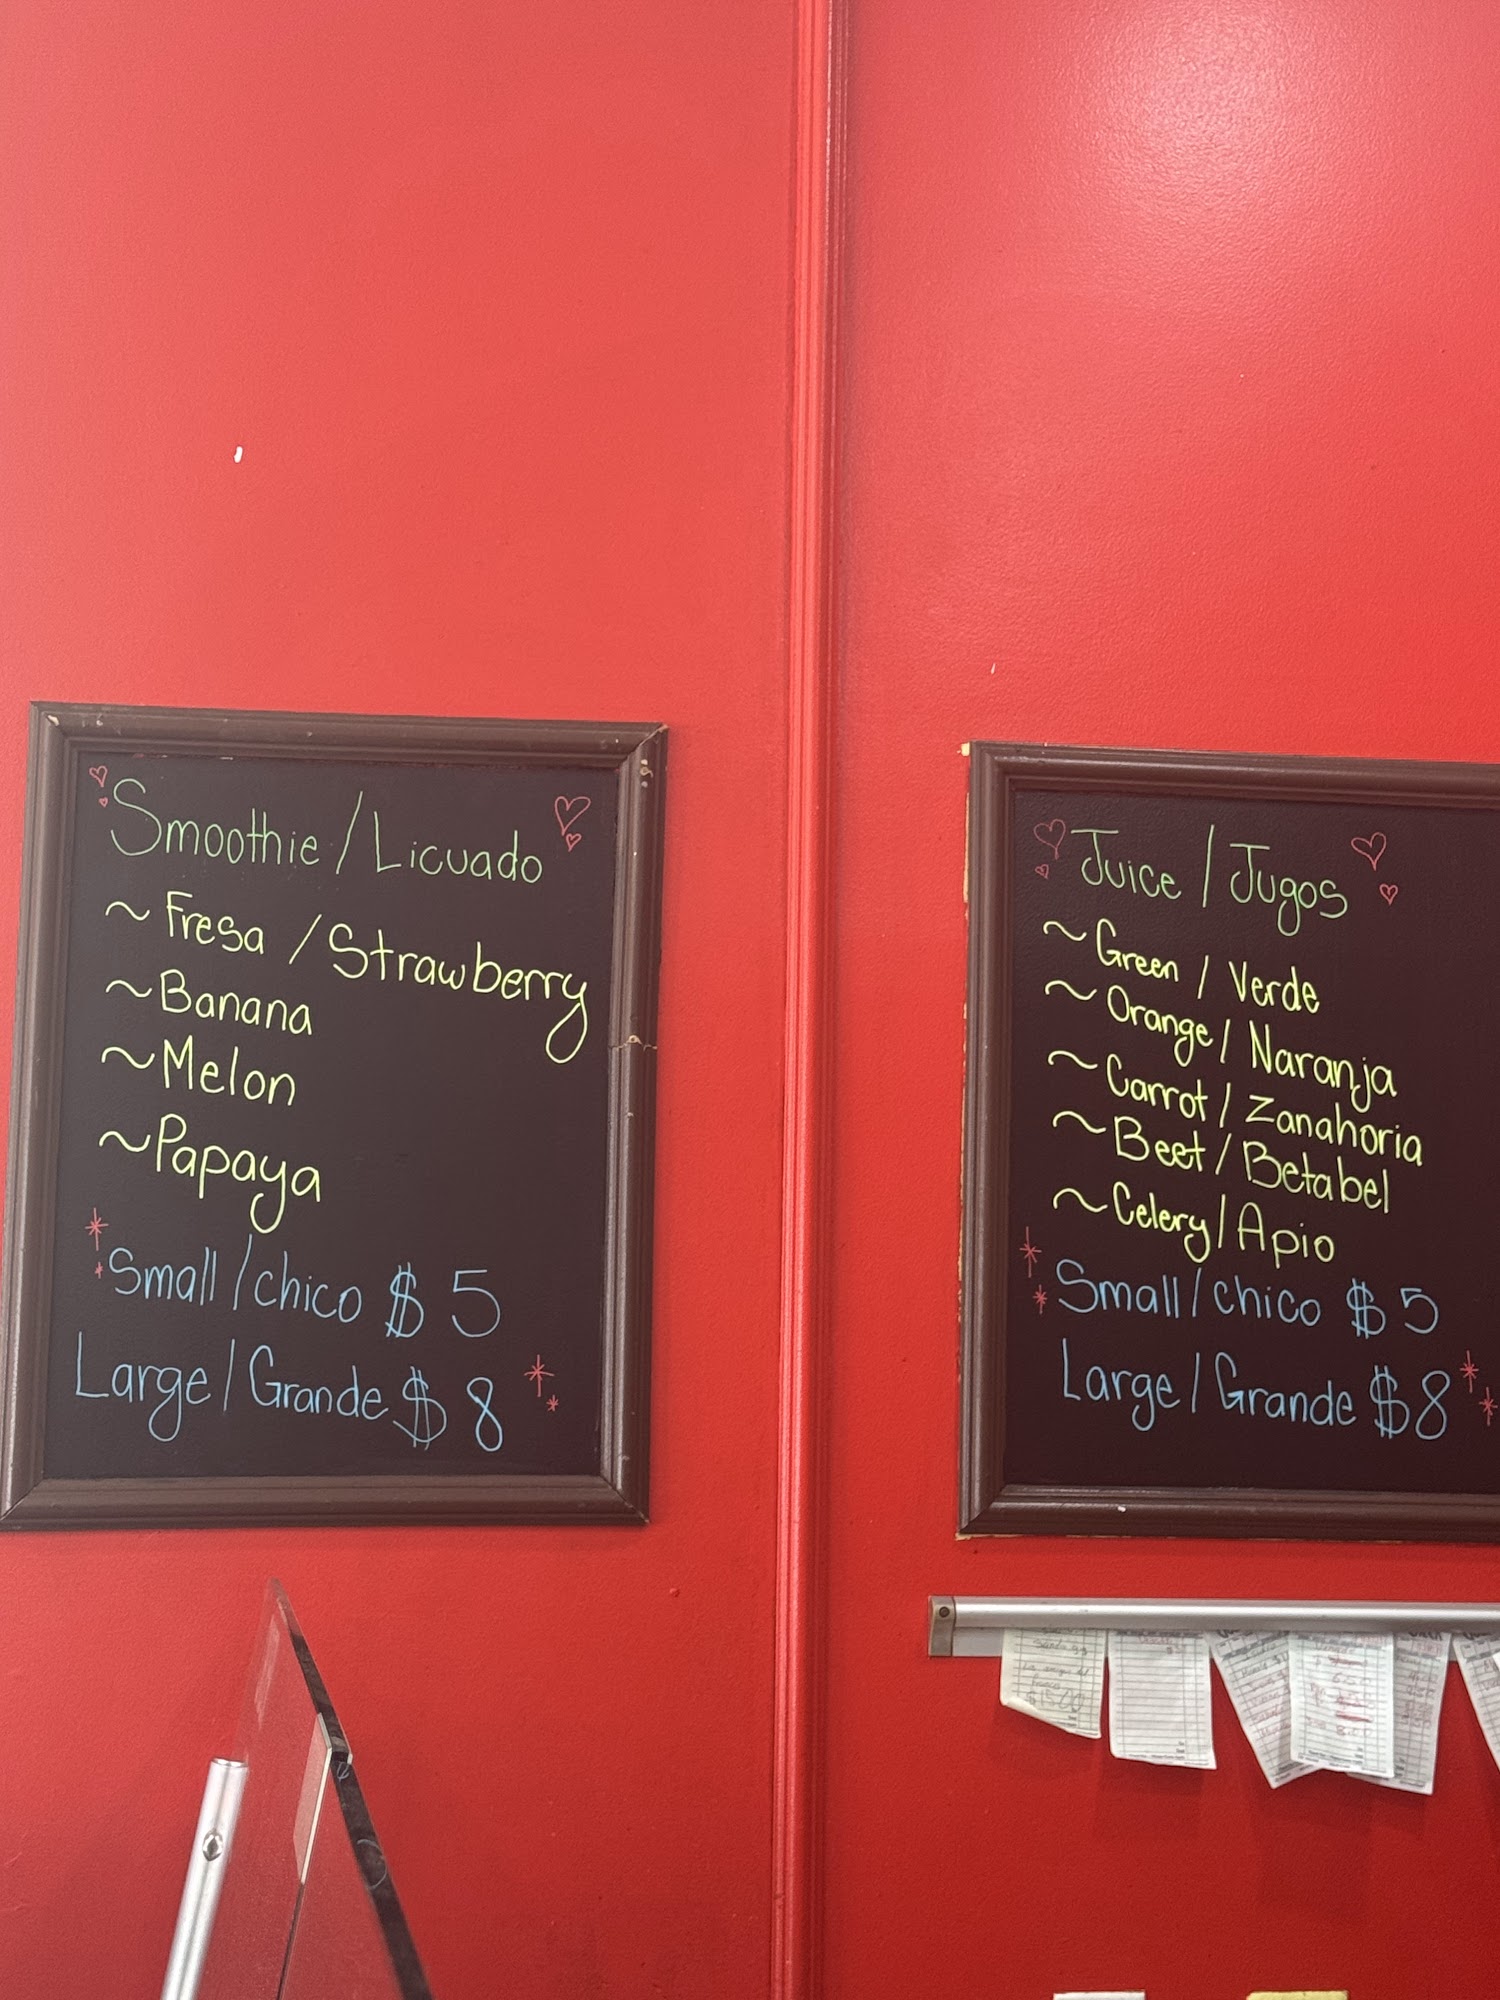 Smoothie / Licuado
~ Fresa / Strawberry
~ Banana
~ Melon
~ Papaya
Small / chico $ 5
Large / Grande $ 8
Juice / Jugos
~ Green / Verde
~ Orange / Naranja
~ Carrot / Zanahoria
~ Beet / Betabel
~ Celery / Apio
Small / chico $ 5
Large / Grande $ 8
$15.00